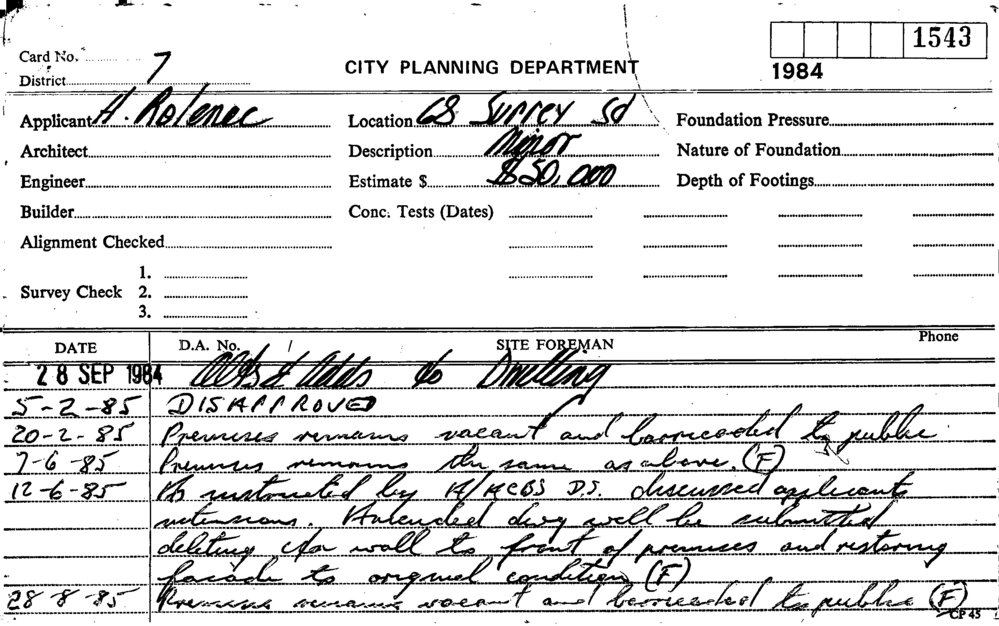 1543
Card No.
7
CITY PLANNING DEPARTMENT
1984
District
Applicant H. Rolenec
Location 68 Surrey Sd
Foundation Pressure
Architect
Description Minor
Nature of Foundation
Engineer
Estimate $ $50,000
Depth of Footings
Builder
Conc. Tests (Dates)
Alignment Checked
1.
Survey Check 2.
3.
DATE D.A. No. / SITE FOREMAN Phone
28 SEP 1984 Alts & Adds to Dwelling
5-2-85 DISAPPROVED
20-2-85 Premises remains vacant and barricaded to public
7-6-85 Premises remains the same as above. (F)
12-6-85 As instructed by D.S. discussed applicants
intensions. Amended dwg will be submitted
deleting wall to front of premises and restoring
facade to original condition (F)
28-8-85 Premises remains vacant and barricaded to public (F)
CP 45